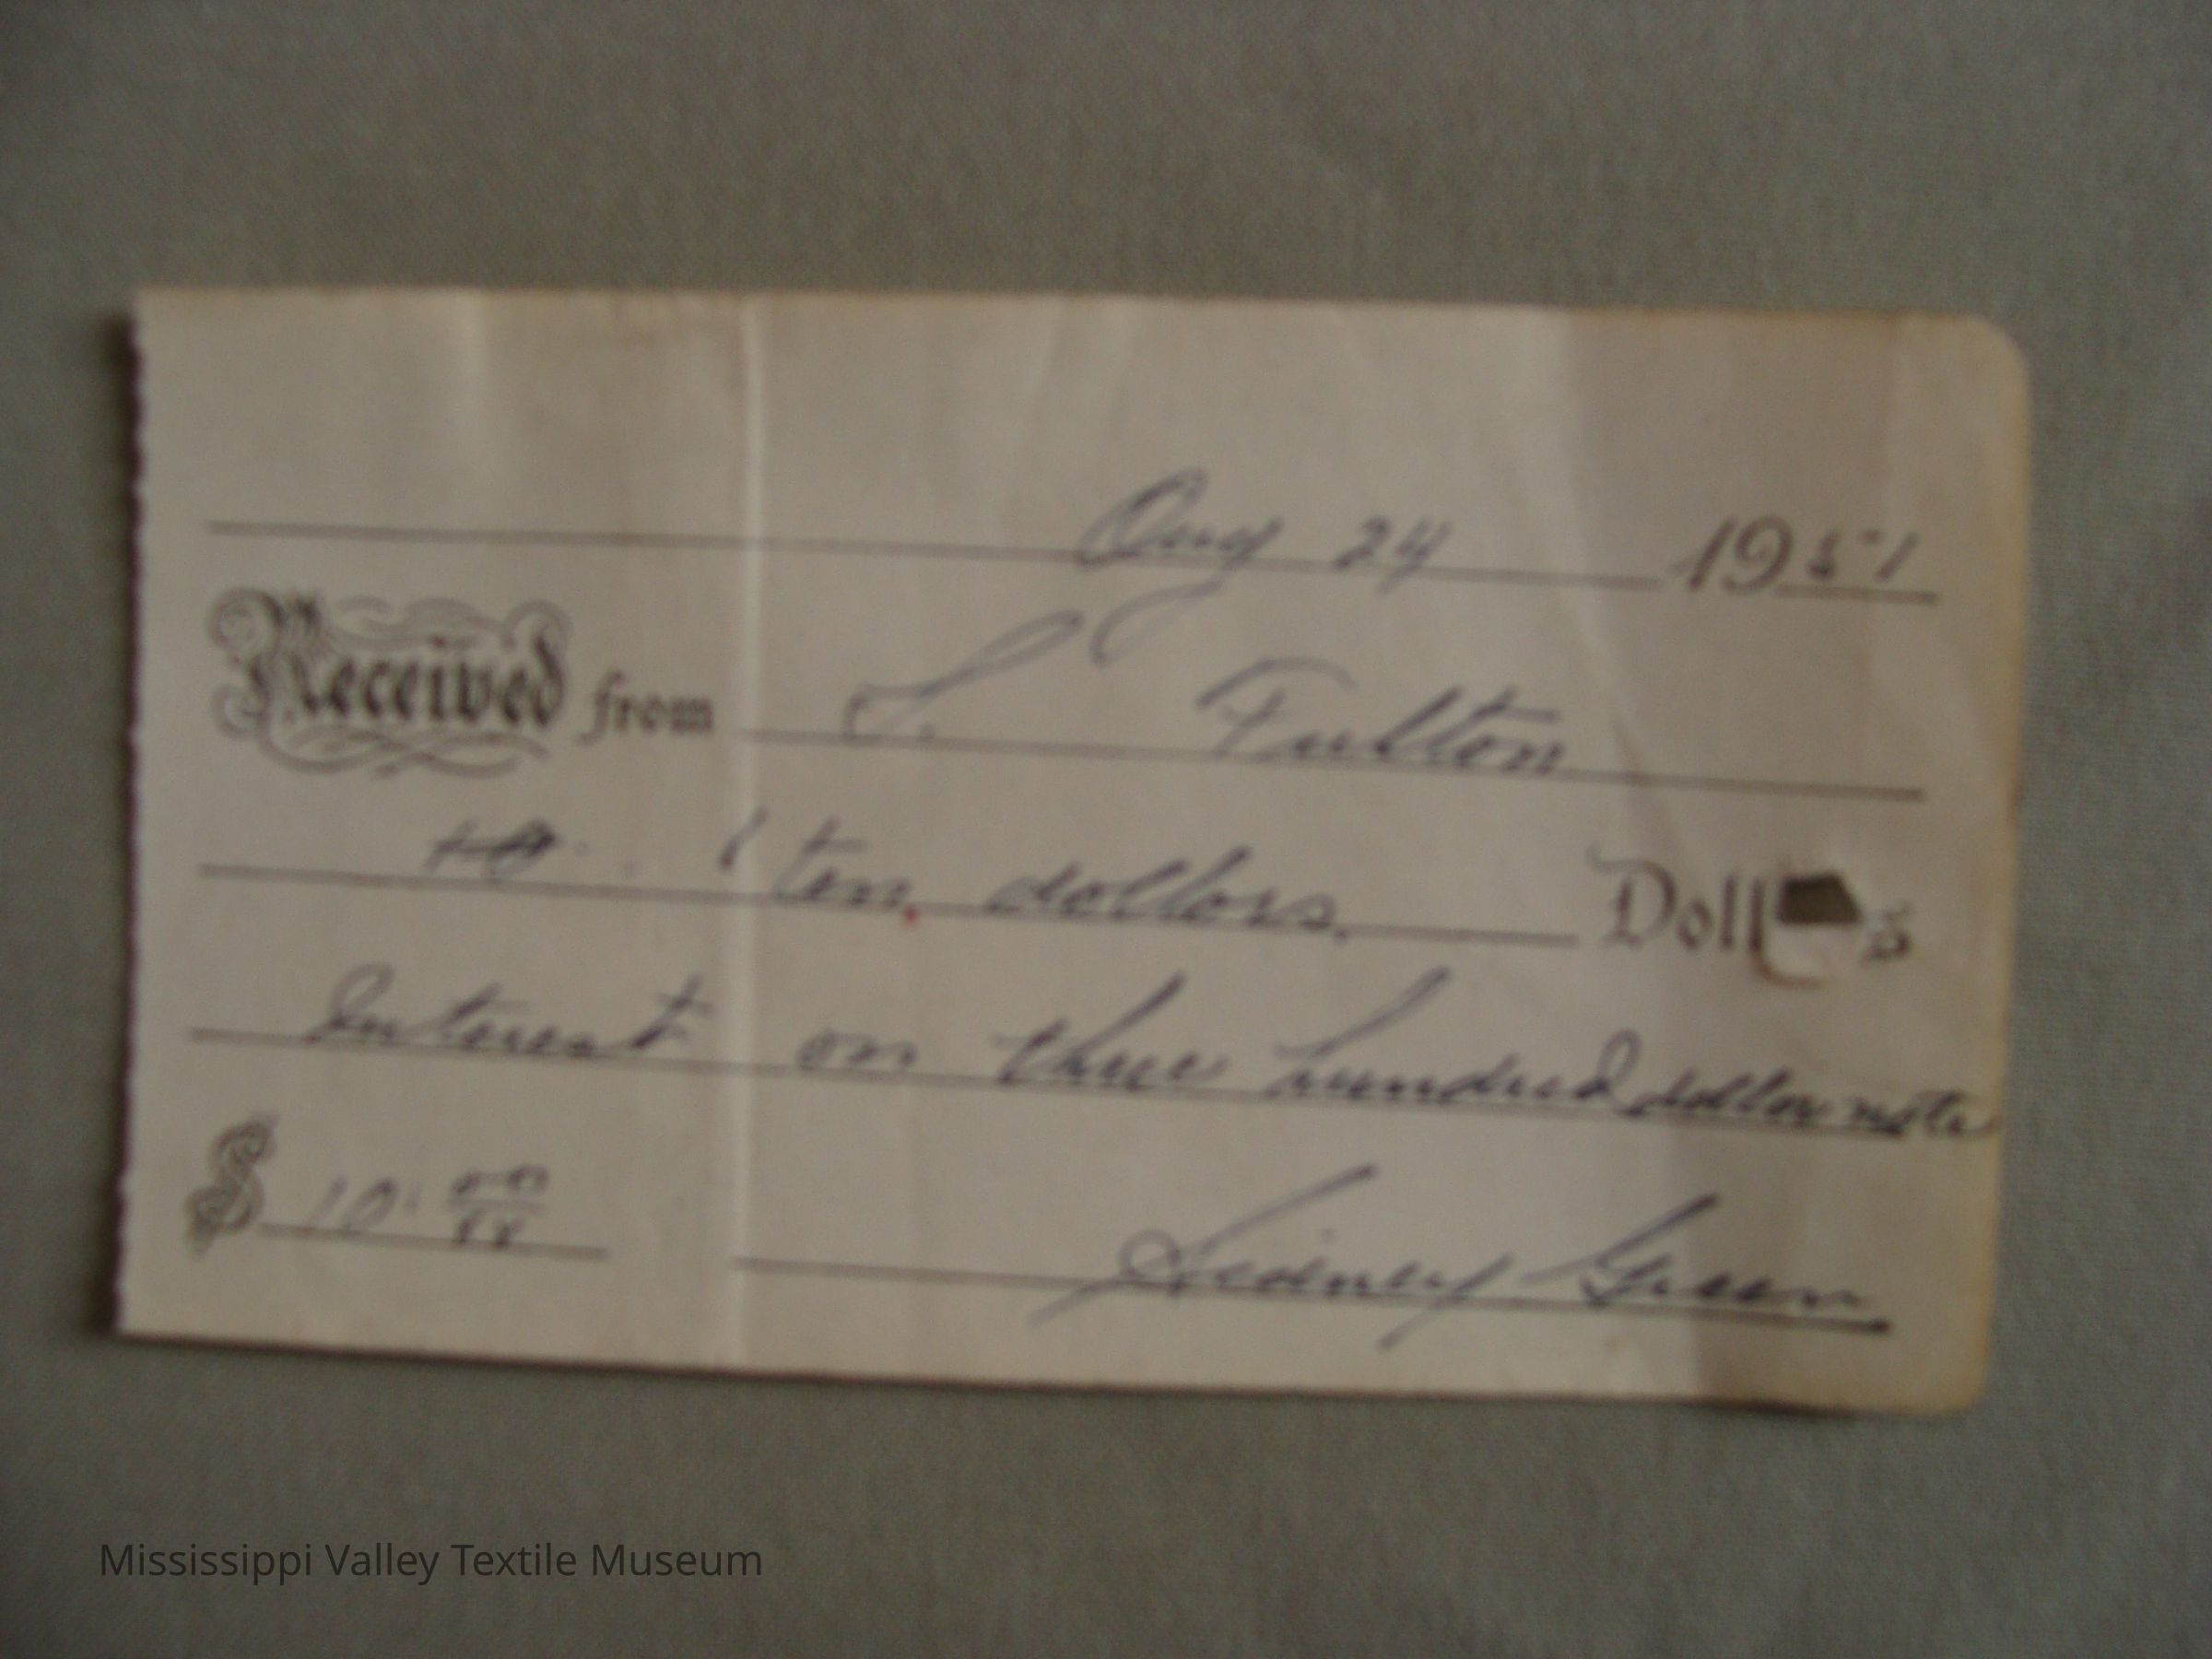 Aug 24 1951
Received from S. Fulton
ten dollars. Dollars
Interest on three hundred dollar note
$ 10. 00/xx Sidney Green
Mississippi Valley Textile Museum